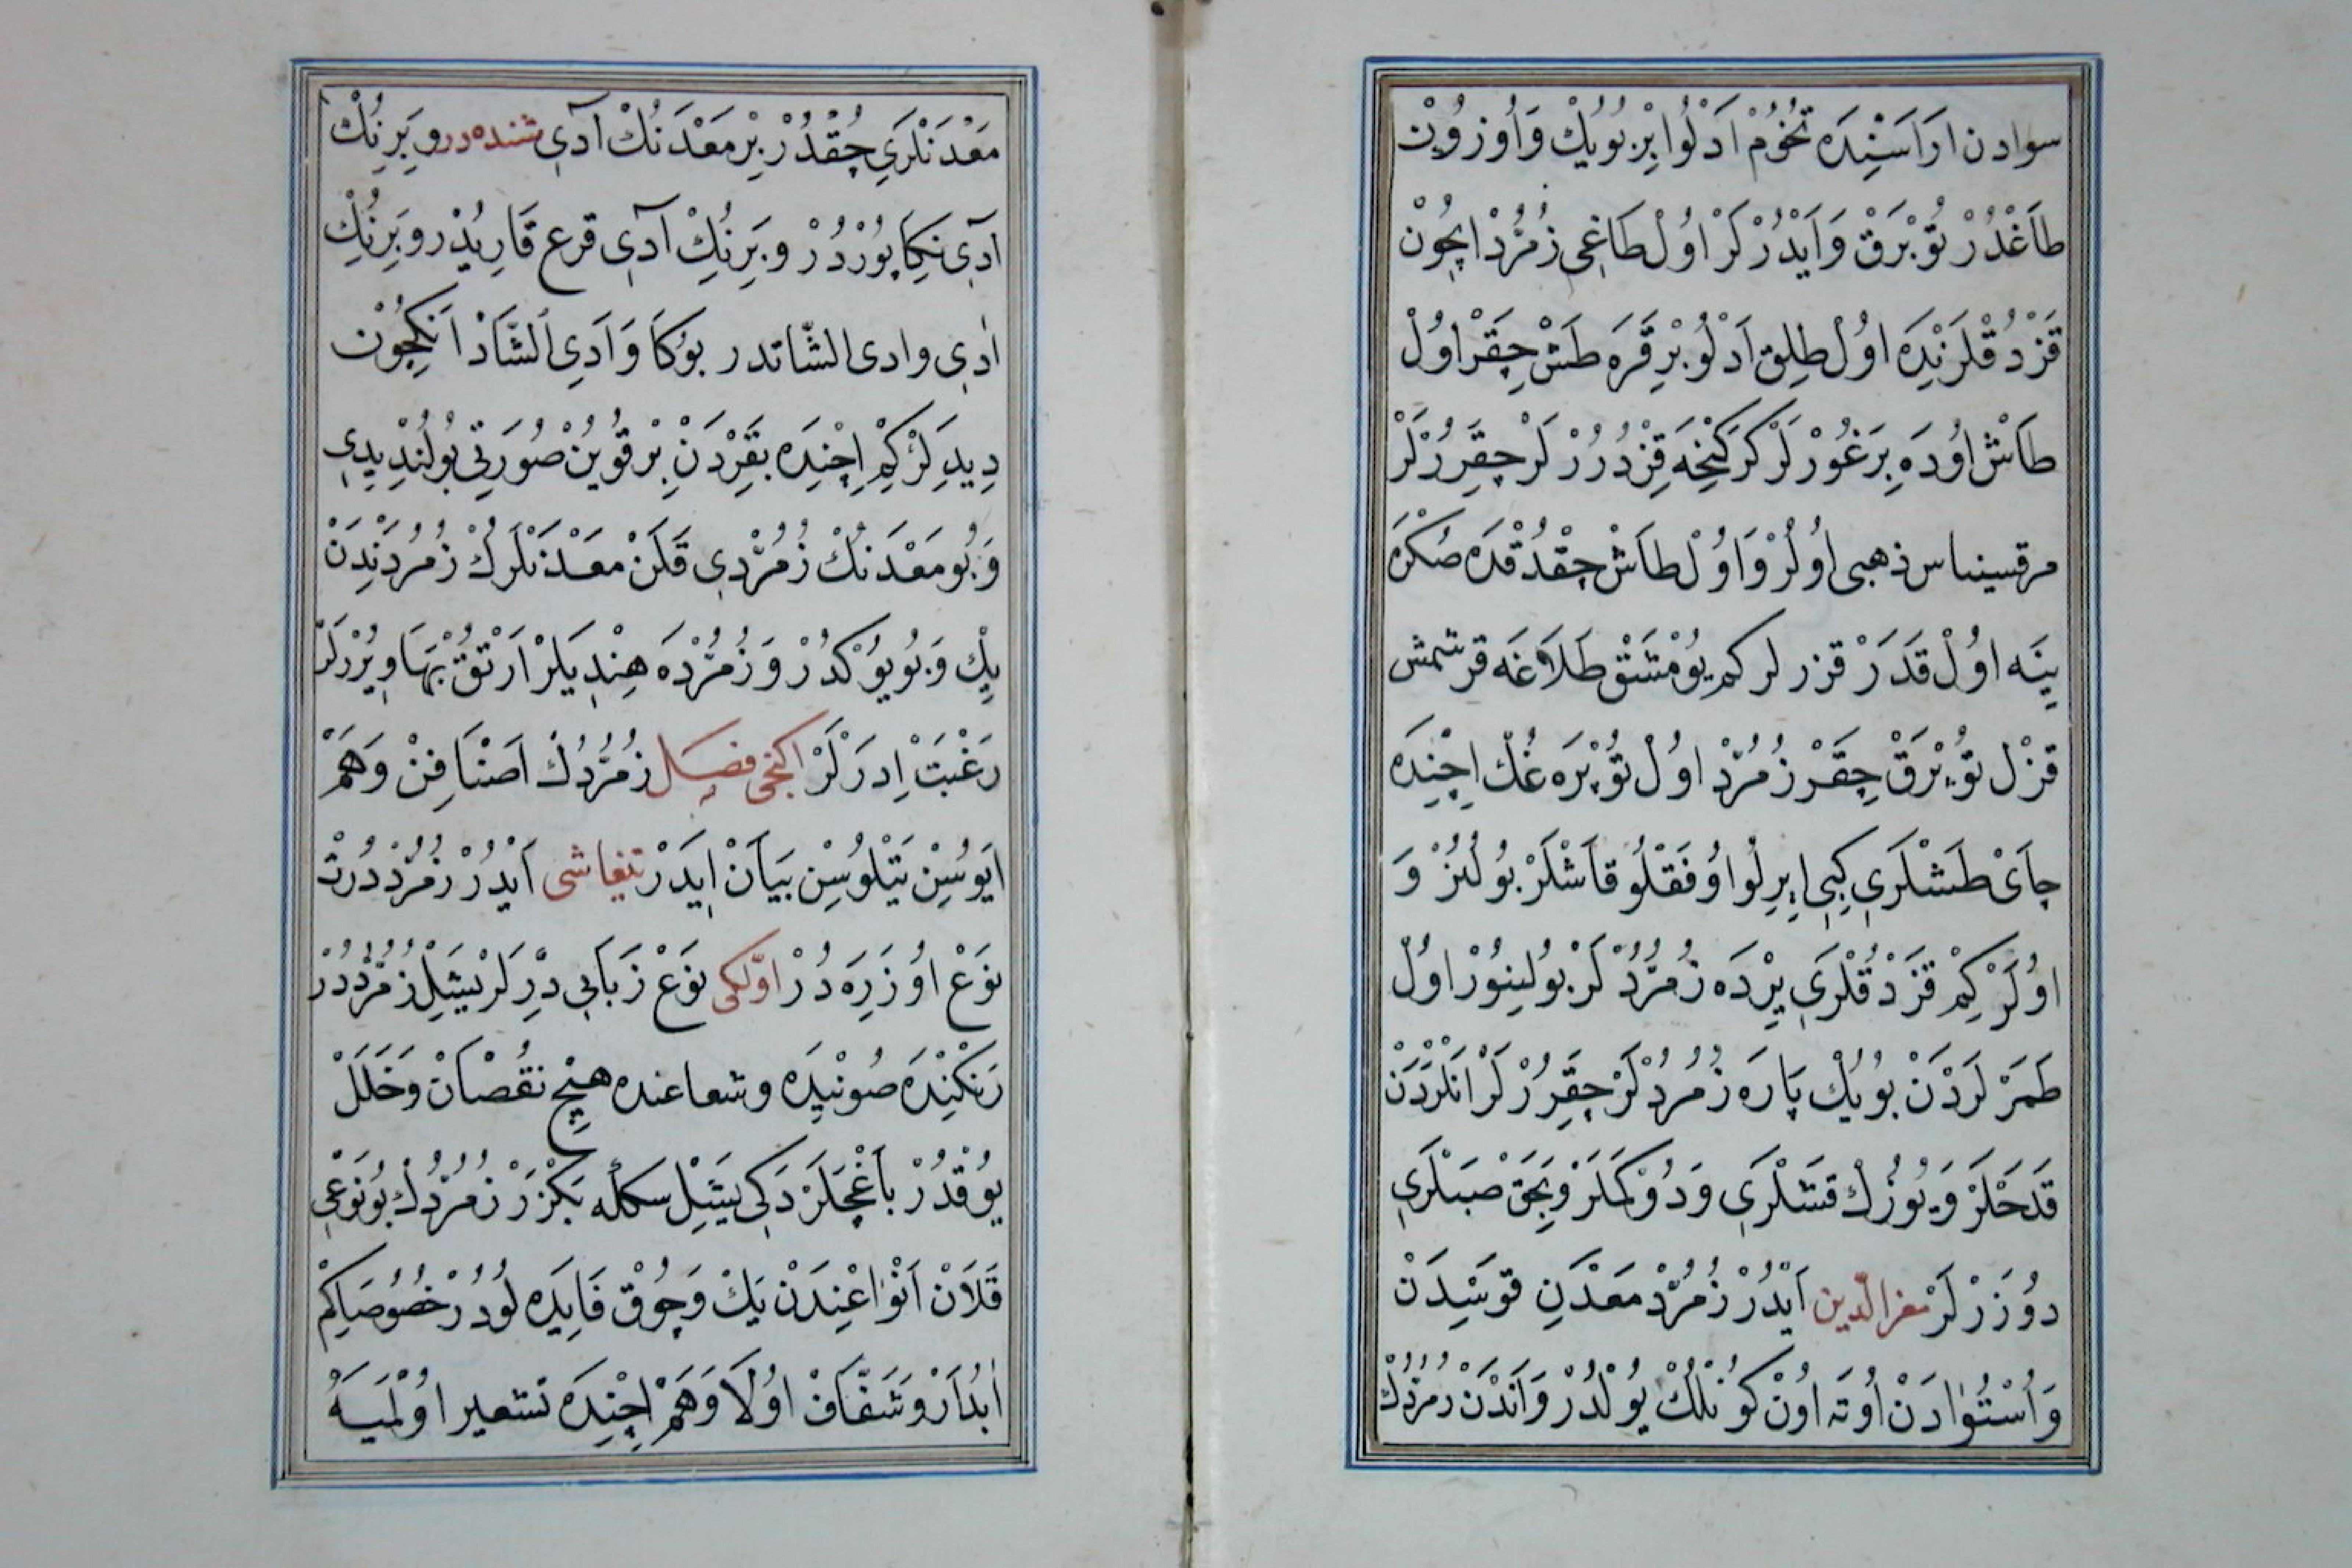 سوادن اَرَاسَنِدَه تُخُومْ اَدْلُوا بِرْ بُويُكْ وَاُوزوُنْ
طَاغْدُرْ تُوبْرَقْ وَاَيْدُرْلَرْ اوُلْ طَاغِى زُمُرُّدْ اِچُونْ
قَزْدُقْلَرَنْدَه اوُلْ طِلِق اَدْلُو بِرْ قَرَه طَشْ چِقَرْ اوُلْ
طَاشْ اوُدَه بِرَغُورْلَرْ كَركَنِجَه قِزْدُرُرْلَرْ چِقَرِرْلَرْ
مرقسيناس ذهبى اوُلُرْ وَاوُلْ طَاشْ چِقْدُقْدَه صُكْرَه
يِنَه اوُلْ قَدَرْ قزرلر كم يُومْشَقْ طَلَاغَه قرشمش
قزْل تُوپْرَقْ چِقَرْ زُمُرُّدْ اوُلْ تُوپْرَه غُكْ اِچِنْدَه
چَاىْ طَشْلَرِى كِبِى اِيرِلُوا وُفَقْلُو قَاشْلَرْ بُولُنُرْ وَ
اوُلَرْ كِمْ قَزْدُقْلَرِى يِرْدَه زُمُرُّدْلَرْ بُولِينُورْ اوُلْ
طَمَرْلَرَدْنْ بُويُكْ پَارَه زُمُرُدْلَرْ چِقَرِرْلَرْ اَنْلَرْدَنْ
قَدَحْلَرْ وَيُوزُكْ قَشْلَرِى وَدُوكْمَلَرْ وَبِچَقْ صَپْلَرِى
دوُزَرْلَرْ معزالدّين اَيْدُرْ زُمُرُّدْ مَعْدَنِ قوَسْدِنْ
وَاُسْتُوَادَنْ اُوتَه اوُنْ كوُنْلُكْ يُولْدُرْ وَاَنْدَنْ زمرّدك
مَعْدَنْلَرِى چُقْدُرْ بِرْ مَعْدَنُكْ آدِى شنده در وبِرِنُكْ
آدِى نِكَاپُورْدُرْ وبِرِنُكْ آدِى قرع قَارِيُدْر وبِرِنُكْ
اٰدِى وادى الشّاتدر بوُكَا وَادِى الشَّاذْ اَنِكِچُونْ
دِيدِلَرْ كِمْ اِچِنْدَه بَقِرْدَنْ بِرْ قُويُنْ صُورَتِى بُولُنْدِيدِى
وَبُو مَعْدَنُكْ زُمُرُّدِى قَلَنْ مَعْدَنْلَرُكْ زُمُرُدِنْدَنْ
يِكْ وَبُويُوكْدُرْ وَزُمُرُّدَه هِنْدِيلَرْ اَرْتُقْ بَهَا وِيرُرْلَرْ
رَغْبَتْ اِدَرْلَرْ اكنجى فصل زُمُرُّدُكْ اَصْنَافِنْ وَهَمْ
اَيوُسِنْ يَتْلُوسِنْ بَيَانْ اِيدَرْ تيفاشى اَيْدُرْ زُمُرُّدْ دُرْتْ
نَوْعْ اوُزَرِه دُرْ اوّلكى نَوْعْ زَبَابِى دِّرلَرْ يَشِلْ زُمُرُّدْدُرْ
رَنْكِنْدَه صُونْدِه وشعاعنده هِيچْ نُقْصَانْ وَخَلَلْ
يُوقْدُرْ بَاغْچَلَرْدَكِى يَشِلْ سكله بَكْزَرْ زُمُرُّدُكْ بُونَوْعِى
قَلَانْ اَنْوَاعِنْدَنْ يَكْ وَچُوقْ فَايِدَه لُودُرْ خُصُوصَاكِمْ
اٰبْدَارْ وَشَفَّافْ اوُلَا وَهَمْ اِچِنْدَه تشعير اوُلْمَيَه